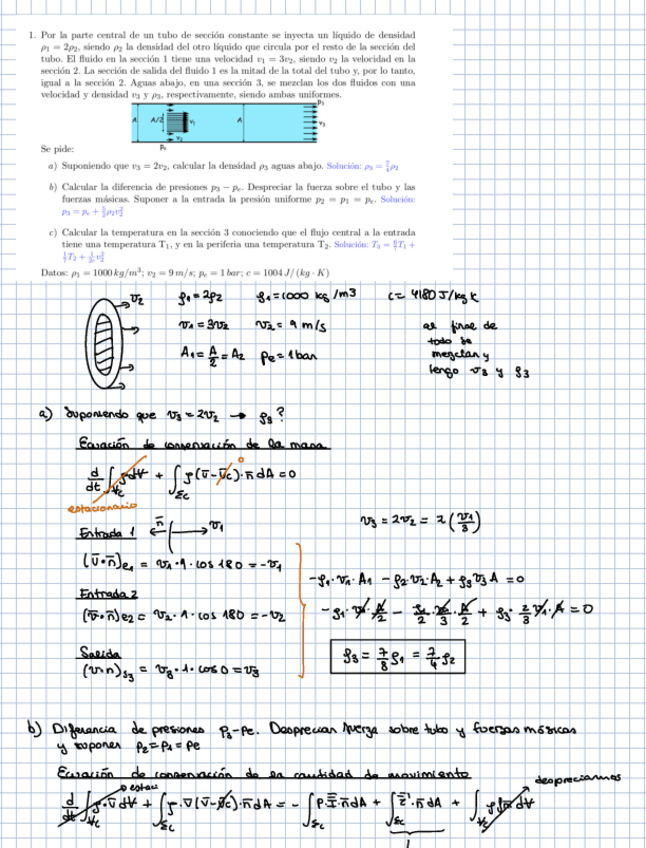 1. Por la parte central de un tubo de sección constante se inyecta un líquido de densidad
ρ₁ = 2ρ₂, siendo ρ₂ la densidad del otro líquido que circula por el resto de la sección del
tubo. El fluido en la sección 1 tiene una velocidad v₁ = 3v₂, siendo v₂ la velocidad en la
sección 2. La sección de salida del fluido 1 es la mitad de la total del tubo y, por lo tanto,
igual a la sección 2. Aguas abajo, en una sección 3, se mezclan los dos fluidos con una
velocidad y densidad v₃ y ρ₃, respectivamente, siendo ambas uniformes.
A A/2 v₁ v₂ Pₑ A p₃ v₃
Se pide:
a) Suponiendo que v₃ = 2v₂, calcular la densidad ρ₃ aguas abajo. Solución: ρ₃ = 7/4 ρ₂
b) Calcular la diferencia de presiones p₃ − pₑ. Despreciar la fuerza sobre el tubo y las
fuerzas másicas. Suponer a la entrada la presión uniforme p₂ = p₁ = pₑ. Solución:
p₃ = pₑ + 5/2 ρ₂v₂²
c) Calcular la temperatura en la sección 3 conociendo que el flujo central a la entrada
tiene una temperatura T₁, y en la periferia una temperatura T₂. Solución: T₃ = 6/7 T₁ +
1/7 T₂ +
Datos: ρ₁ = 1000 kg/m³; v₂ = 9 m/s; pₑ = 1 bar; c = 1004 J/(kg · K)
v₂ ρ₁ = 2ρ₂ ρ₁ = 1000 kg/m3 c = 4180 J/kg K
v₁ = 3v₂ v₂ = 9 m/s
A₁ = A/2 = A₂ Pe = 1 bar
al final de
todo se
mezclan y
tengo v₃ y ρ₃
a) Suponiendo que v₃ = 2v₂ → ρ₃?
Ecuación de conservación de la masa
d/dt ∫Vc ρdV + ∫Σc ρ(v̄ - v̄c)·n̄ dA = 0
0
estacionario
Entrada 1 n̄ v₁
v₃ = 2v₂ = 2(v₁/3)
(v̄·n̄)e₁ = v₁·1·cos 180 = -v₁
Entrada 2
-ρ₁·v₁·A₁ - ρ₂·v₂·A₂ + ρ₃v₃A = 0
(v̄·n̄)e2 = v₂·1·cos 180 = -v₂
-ρ₁·v₁·A/2 - ρ₁/2·v₁/3·A/2 + ρ₃·2/3 v₁·A = 0
Salida
(v·n)s₃ = v₃·1·cos 0 = v₃
ρ₃ = 7/8 ρ₁ = 7/4 ρ₂
b) Diferencia de presiones P₃-Pe. Desprecian fuerza sobre tubo y fuerzas másicas
y suponer P₂=P₁=Pe
Ecuación de conservación de la cantidad de movimiento
estau
despreciamos
d/dt ∫Vc ρ·v̄ dV + ∫Σc ρ·v̄(v̄-v̄c)·n̄ dA = - ∫Σc P·Ī·n̄ dA + ∫Σc τ̄'·n̄ dA + ∫Vc ρf̄m dV